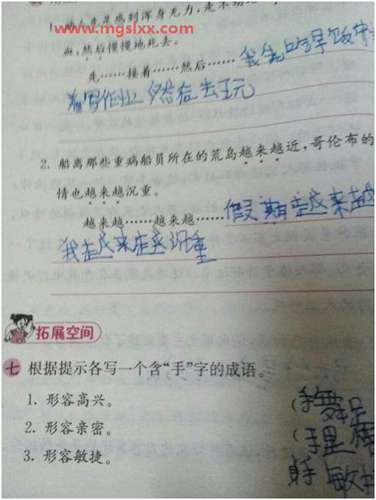 www.mgslxx.com
血,然后慢慢地死去。
先……接着……然后……我先吃早饭
着写作业 然后去玩
2. 船离那些重病船员所在的荒岛越来越近,哥伦布的
情也越来越沉重。
越来越……越来越……假期越来越
我越来越沉重
拓展空间
七 根据提示各写一个含“手”字的成语。
1. 形容高兴。
2. 形容亲密。
3. 形容敏捷。
手舞足
手
身手敏